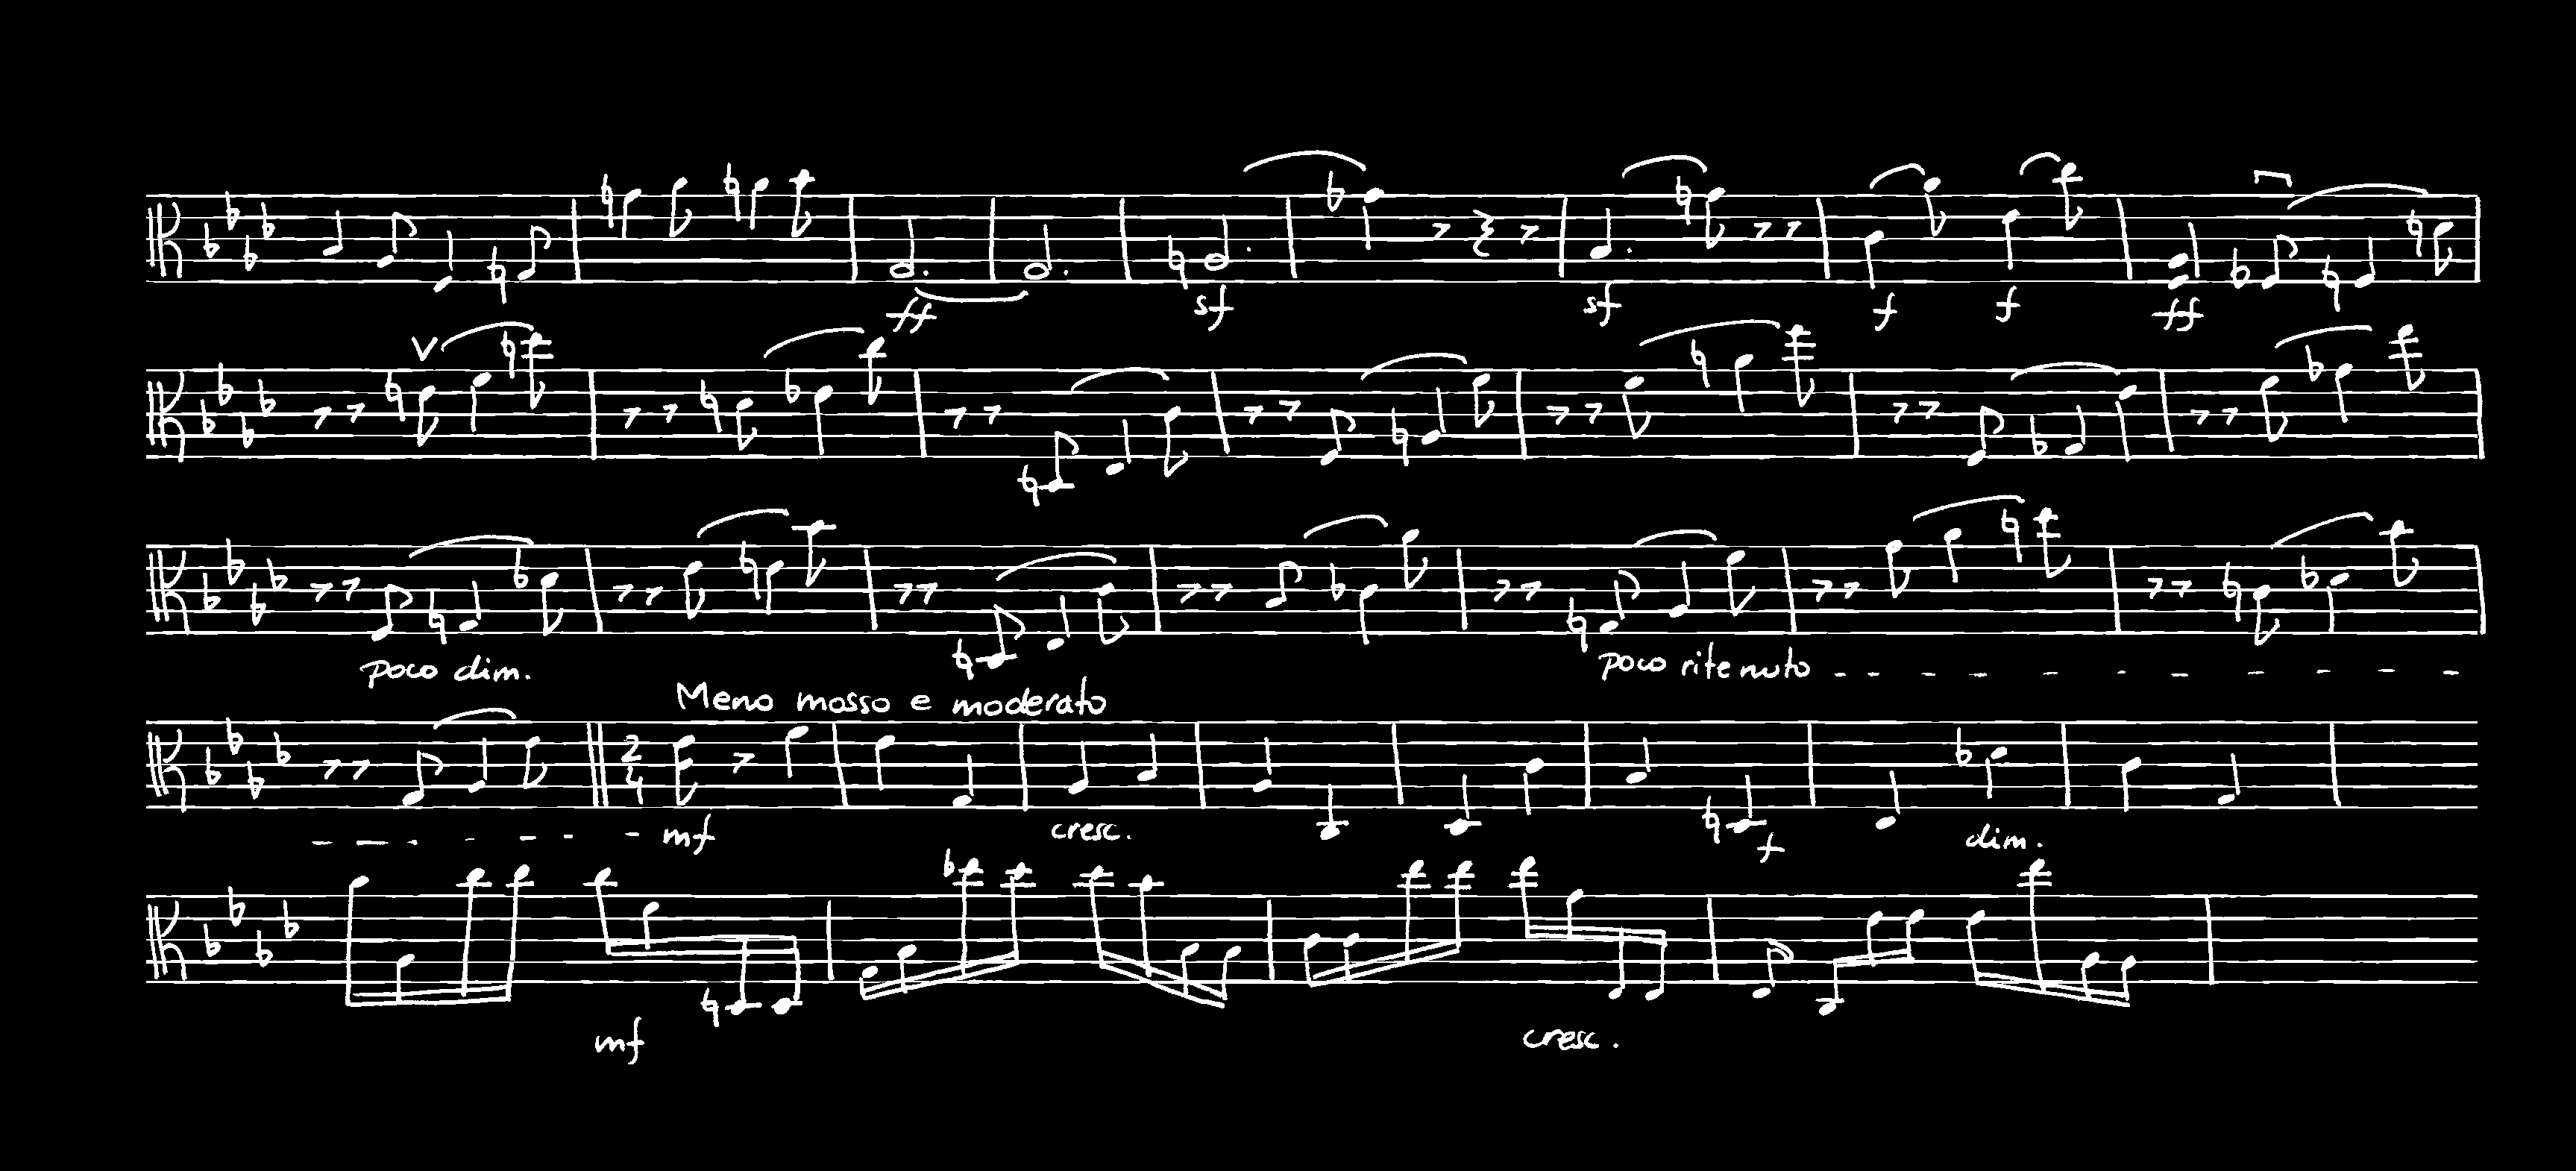 ff sf sf f f ff
V
poco dim. poco ritenuto
Meno mosso e moderato
2
4
mf cresc. f dim.
mf cresc.